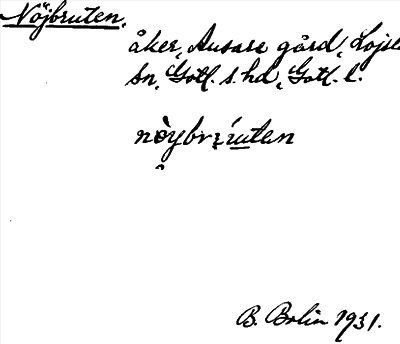 Nöjbruten.
åker, Ansarve gård, Lojsta
sn, Gotl. s. hd, Gotl. l.
nöybrúuten
B. Bolin 1931.